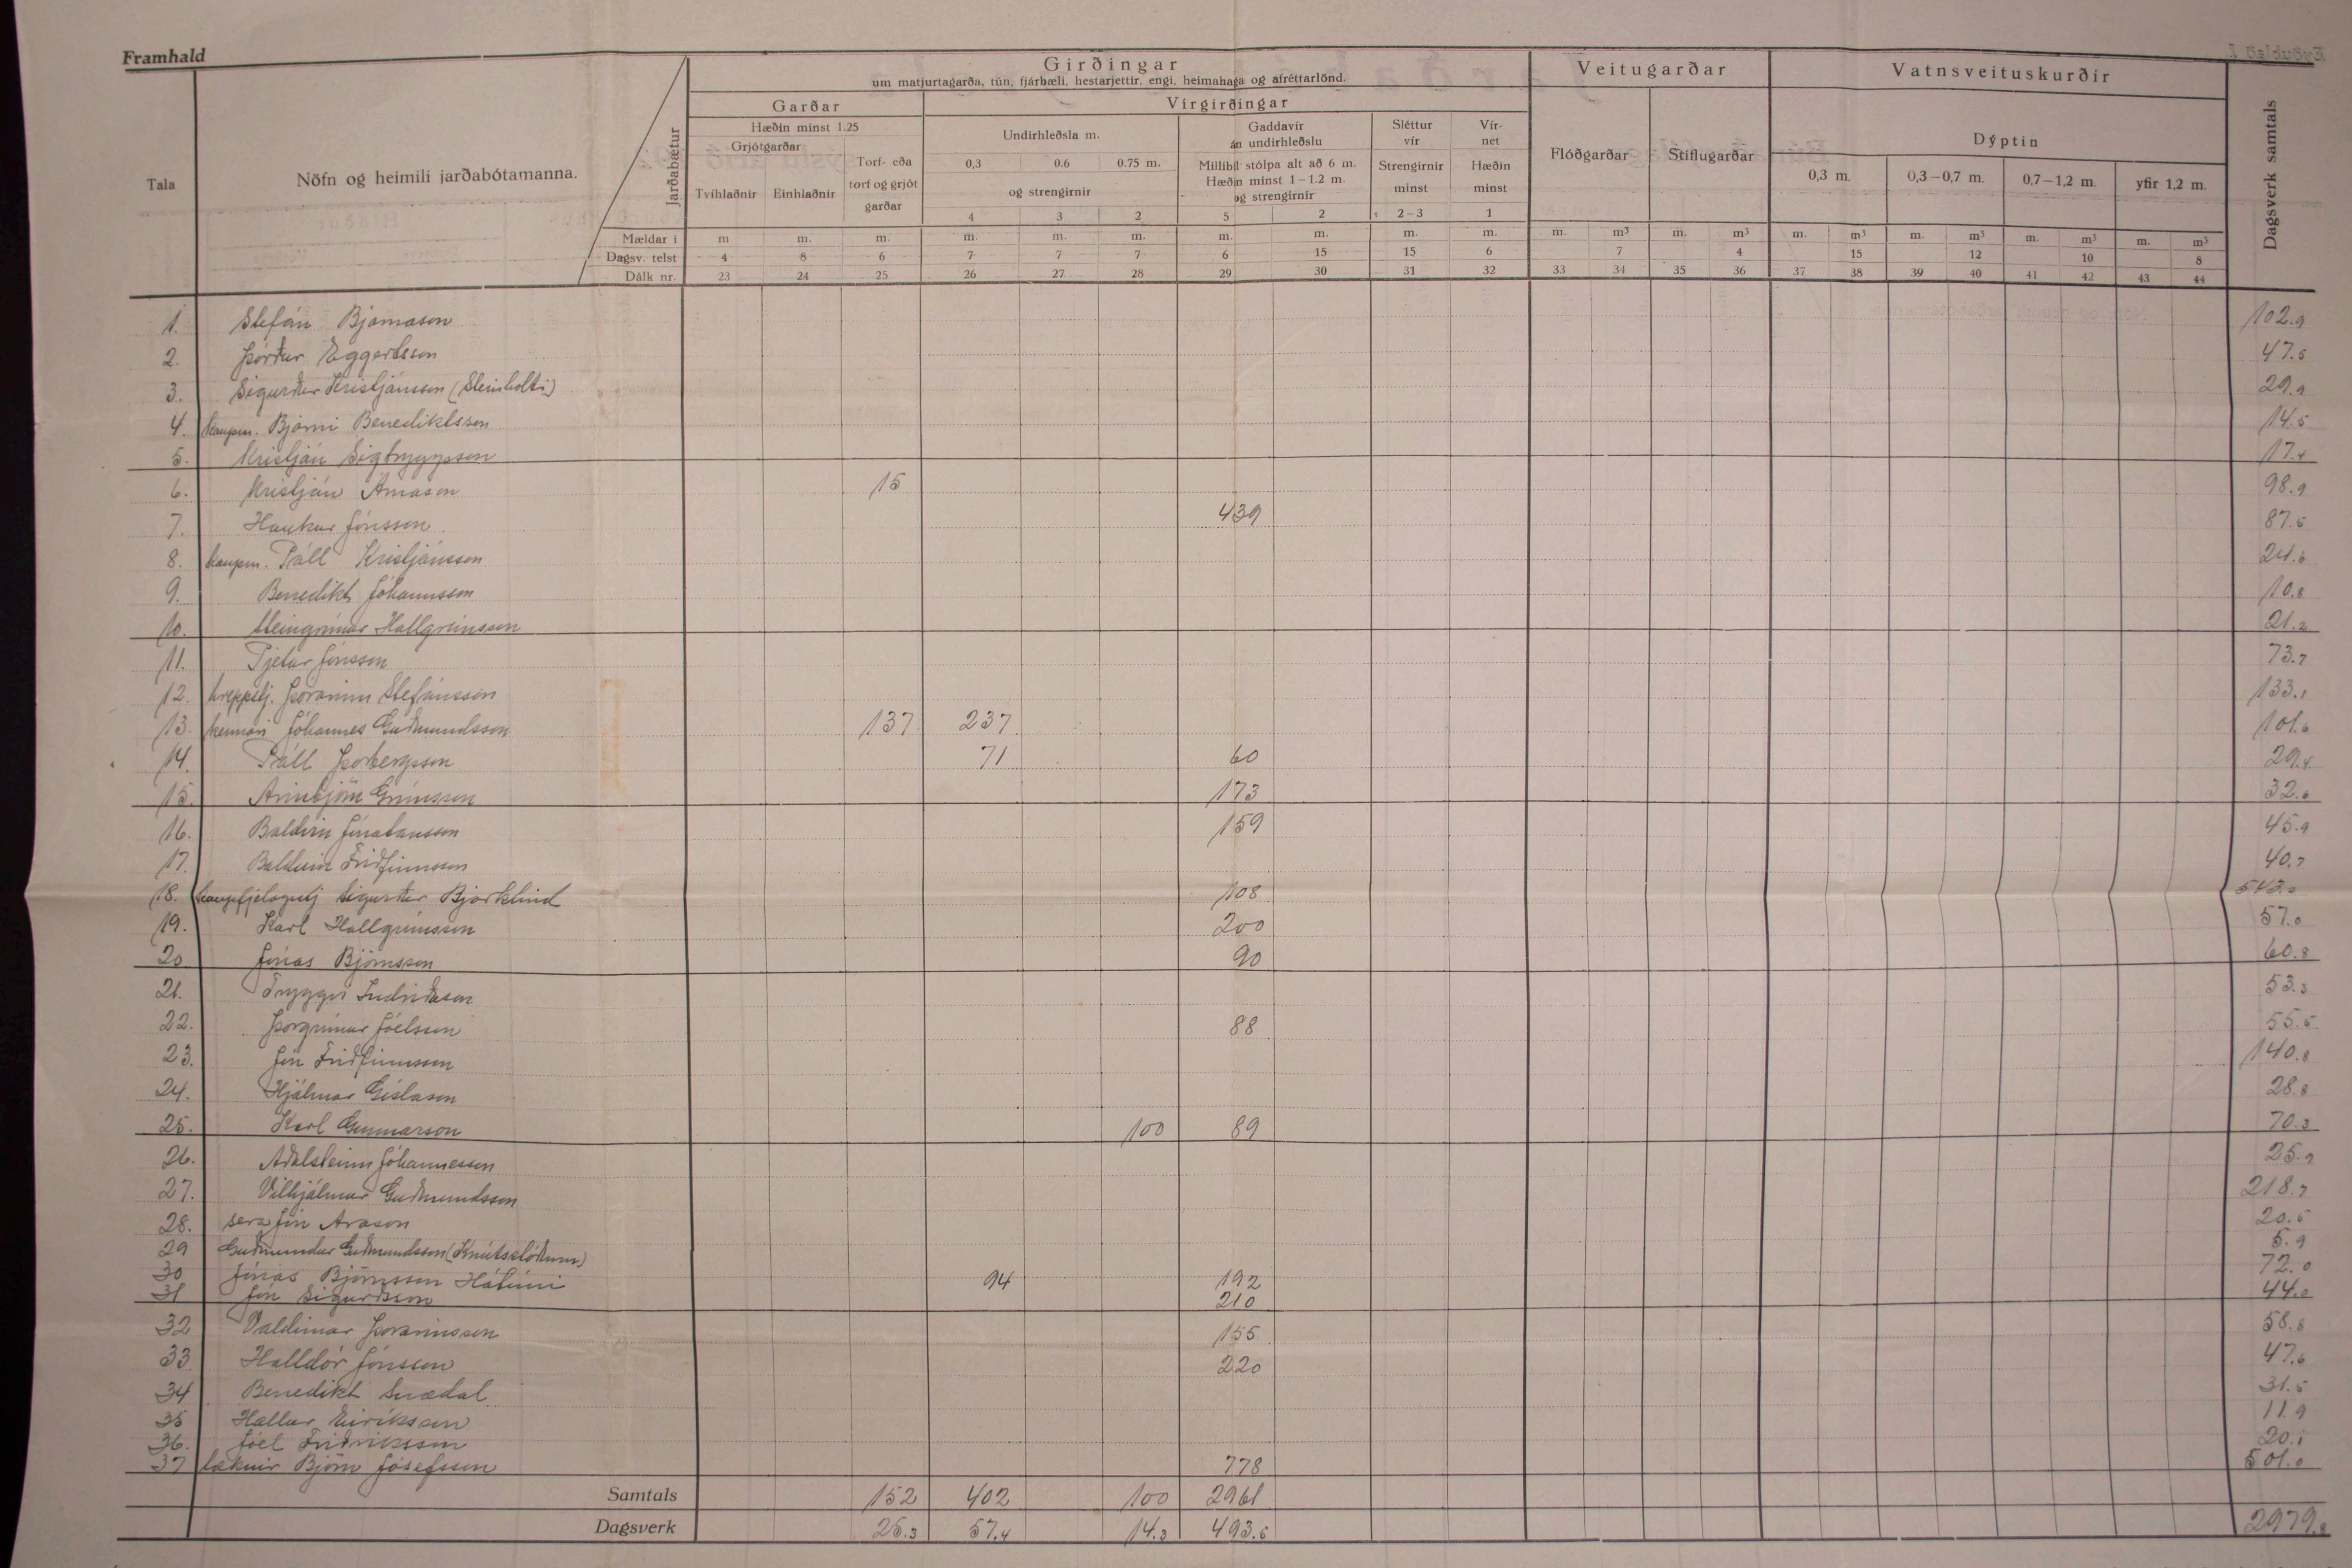 Framhald
Tala
Nöfn og heimili jarðabótamanna.
Jarðabætur
Girðingar
um matjurtagarða, tún, fjárbæli, hestarjettir, engi, heimahaga og afréttarlönd.
Veitugarðar
Vatnsveituskurðir
Dagsverk samtals
Garðar
Vírgirðingar
Hæðin minst 1.25
Grjótgarðar
Tvíhlaðnir Einhlaðnir
Torf- eða torf og grjót garðar
Undirhleðsla m.
0,3 0.6 0.75 m.
og strengirnir
4 3 2
Gaddavír án undirhleðslu
Millibil stólpa alt að 6 m.
Hæðin minst 1–1.2 m.
og strengirnir
5 2
Sléttur vír
Strengirnir minst
2–3
Vír-net
Hæðin minst
1
Flóðgarðar Stíflugarðar
Dýptin
0,3 m. 0,3–0,7 m. 0,7–1,2 m. yfir 1,2 m.
Mældar í m m. m. m. m. m. m. m. m. m. m. m³ m. m³ m. m³ m. m³ m. m³ m. m³
Dagsv. telst 4 8 6 7 7 7 6 15 15 6 7 4 15 12 10 8
Dálk nr. 23 24 25 26 27 28 29 30 31 32 33 34 35 36 37 38 39 40 41 42 43 44
1. Stefán Bjarnason 102.9
2. Þórður Eggertsson 47.5
3. Sigurður Kristjánsson (Steinholti) 29.9
4. kaupm. Bjarni Benediktsson 14.5
5. Kristján Sigtryggsson 17.4
6. Kristján Árnason 15 98.9
7. Haukur Jónsson 439 87.5
8. kaupm. Páll Kristjánsson 24.6
9. Benedikt Jóhannsson 10.8
10. Steingrímur Hallgrímsson 21.2
11. Pjetur Jónsson 73.7
12. hreppstj. Þórarinn Stefánsson 133.1
13. kennari Jóhannes Guðmundsson 137 237 101.6
14. Páll Þorbergsson 71 60 29.4
15. Arinbjörn Grímsson 173 32.6
16. Baldvin Jónatansson 159 45.9
17. Baldvin Friðfinnsson 40.7
18. kaupfjelagsstj Sigurður Bjarklind 108 543.0
19. Karl Hallgrímsson 200 57.0
20 Jónas Bjarnason 90 60.8
21. Tryggvi Indriðason 53.3
22. Þorgrímur Jóelsson 88 55.5
23. Jón Friðfinnsson 140.8
24. Hjálmar Gíslason 28.8
25. Karl Gunnarson 100 89 70.3
26. Aðalsteinn Jóhannesson 25.9
27. Vilhjálmur Guðmundsson 218.7
28. sera Jón Arason 20.5
29 Guðmundur Guðmundsson (Knútsstöðum) 5.9
30 Jónas Bjarnason Hátúni 94 192 72.0
31 Jón Sigurðsson 210 44.0
32 Valdimar Þórarinsson 155 58.8
33 Halldór Jónsson 220 47.6
34 Benedikt Snædal 31.5
35 Hallur Eiríksson 11.9
36. Jóel Friðriksson 20.1
37 læknir Björn Jósefsson 778 501.0
Samtals 152 402 100 2961
Dagsverk 25.3 57.4 14.3 493.5 2979.8